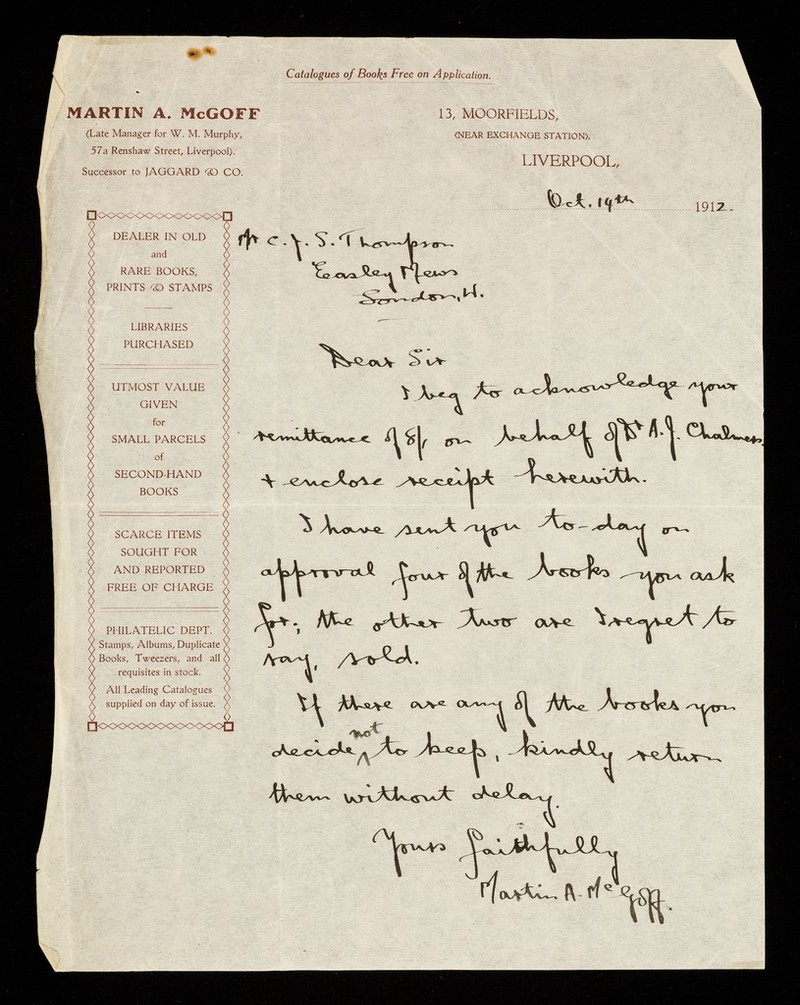 Catalogues of Books Free on Application.
MARTIN A. McGOFF
(Late Manager for W. M. Murphy,
57a Renshaw Street, Liverpool).
Successor to JAGGARD & CO.
13, MOORFIELDS,
(NEAR EXCHANGE STATION),
LIVERPOOL,
Oct. 19th 1912.
DEALER IN OLD
and
RARE BOOKS,
PRINTS & STAMPS
LIBRARIES
PURCHASED
UTMOST VALUE
GIVEN
for
SMALL PARCELS
of
SECOND-HAND
BOOKS
SCARCE ITEMS
SOUGHT FOR
AND REPORTED
FREE OF CHARGE
PHILATELIC DEPT.
Stamps, Albums, Duplicate
Books, Tweezers, and all
requisites in stock.
All Leading Catalogues
supplied on day of issue.
Mr C. J. S. Thompson
Easley Mews
London, W.
Dear Sir
I beg to acknowledge your
remittance of 8/, on behalf of Dr A. J. Chalmers,
& enclose receipt herewith.
I have sent you to-day on
approval four of the books you ask
for; the other two are I regret to
say, sold.
If there are any of the books you
decide not to keep, kindly return
them without delay.
Yours faithfully
Martin A. McGoff.